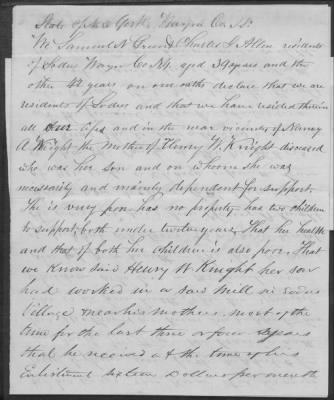 State of New York Wayne Co. SS.
We Samuel N. Charles J. Allen residents
of Sodus Wayne Co. N.Y. aged 34 years and the
other 42 years on our oaths declare that we are
residents of Sodus and that we have resided therein
all our lifes and in the near vicinity of Nancy
A. Wright the Mother of Henry W. Knight diseased
who was her son and on whoom she was
necessarily and mainly dependent for support.
She is very poor has no property has two children
to support, both under twelve years, That her health
and that of both her children is also poor. That
we know said Henry W Knight her son
had worked in a saw mill in Sodus
Village near his mothers most of the
time for the last three or four years
that he received at the time of his
Enlistment sixteen Dollars per month